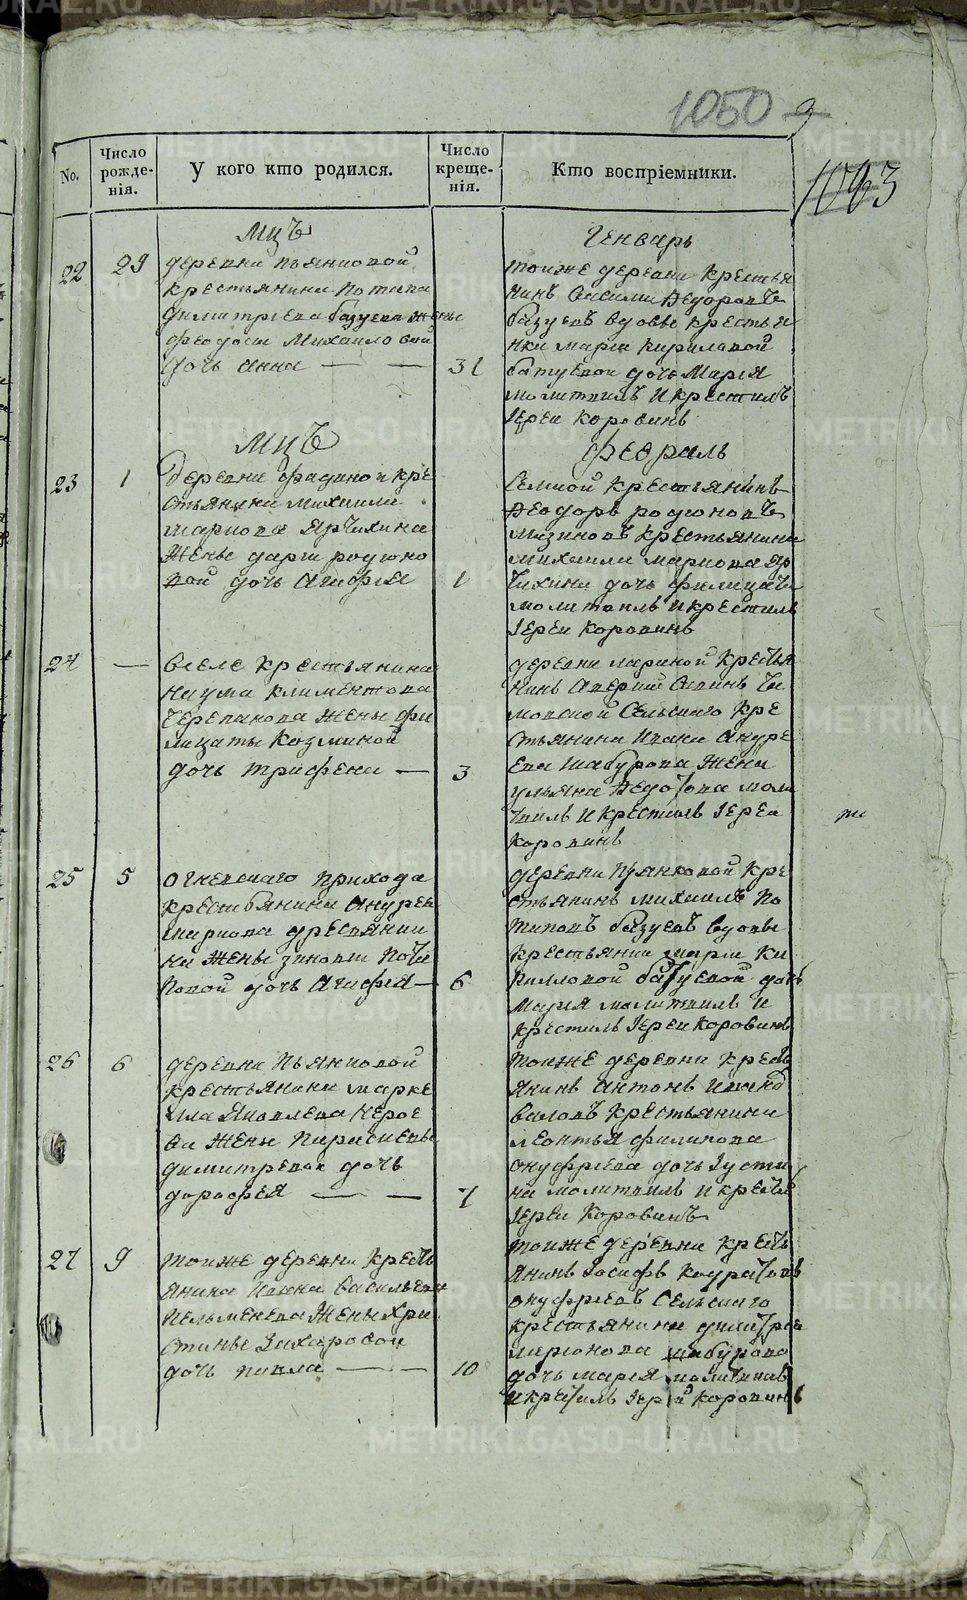 1050
1063
No.
Число рожденія.
У кого кто родился.
Число крещенія.
Кто воспріемники.
Мцъ
Генварь
22
29
деревни пьянковой
крестьянина потапа
димитріева базуева жены
феодосьи михайловой
дочь анна
31
тоиже деревни крестья
нинъ василий федоровъ
базуевъ вдовы крестья
нки маріи кириловой
батуевой дочь Марія
молитвилъ и крестилъ
Іерей коровинъ
Мцъ
февраль
23
1
деревни фадиной кре
стьянина михаила
маркова ярчихина
жены дарьи родионо
вой дочь агафія
1
селской крестьянинъ
феодоръ родионовъ
мизиновъ крестьянина
михаила маркова яр
чихина дочь филицата
молитвилъ и крестилъ
Іерей коровинъ
24
—
вселе крестьянина
наума климентова
черепанова жены фи
лицаты козминой
дочь трифена
3
деревни лариной крестья
нинъ аверий савинъ
сельскаго кре
стьянина ивана андре
ева шабурова жена
ульяна федотова моли
твилъ и крестилъ Іерей
коровинъ
25
5
огневскаго прихода
крестьянина андрея
маркова
жены зиновьи
повой дочь агафія
6
деревни пьянковой кре
стьянинъ михаилъ по
таповъ базуевъ вдовы
крестьянки маріи ки
риловой батуевой дочь
марія молитвилъ и
крестилъ Іерей коровинъ
26
6
деревни пьянковой
крестьянина марке
лла яковлева
жены парасковьи
димитревой дочь
дорофея
7
тоиже деревни крест
янинъ антонъ иванов
валовъ крестьянина
леонтья филипова
онуфріева дочь Іусти
на молитвилъ и крестил
Іерей коровинъ
27
9
тоиже деревни крест
янина ивана васильева
пельменева жены хри
стины захаровой
дочь павла
10
тоиже деревни крест
янинъ Іосифъ кодратовъ
онуфріевъ сельскаго
крестьянина димитрія
ларионова шабурова
дочь марія молитвилъ
и крестилъ Іерей коровинъ
METRIKI.GASO-URAL.RU